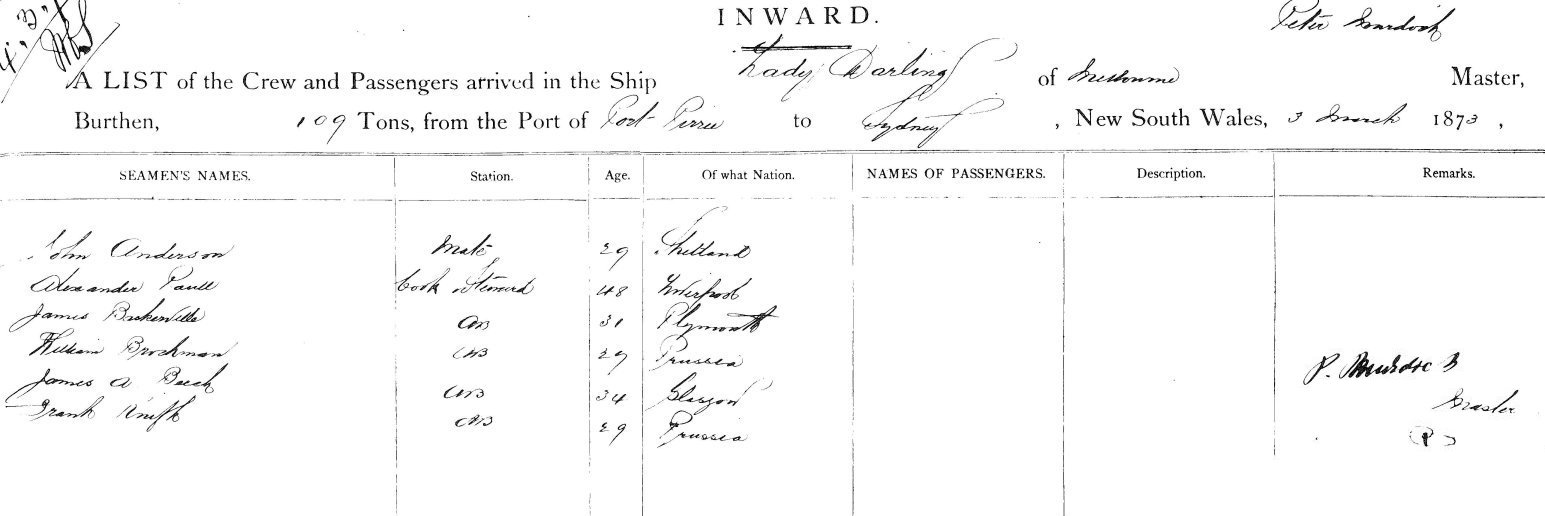 4.3.
INWARD.
Peter Murdoch
A LIST of the Crew and Passengers arrived in the Ship Lady Darling of Melbourne Master,
Burthen, 109 Tons, from the Port of Port Pirrie to Sydney, New South Wales, 3 March 1873,
SEAMEN'S NAMES. Station. Age. Of what Nation. NAMES OF PASSENGERS. Description. Remarks.
John Anderson Mate 29 Shetland
Alexander Paull Cook & Steward 48 Liverpool
James Baskerville AB 31 Plymouth
William Brockman AB 29 Prussia
James A Beech AB 34 Glasgow
Frank AB 29 Prussia
P. Murdoch
Master